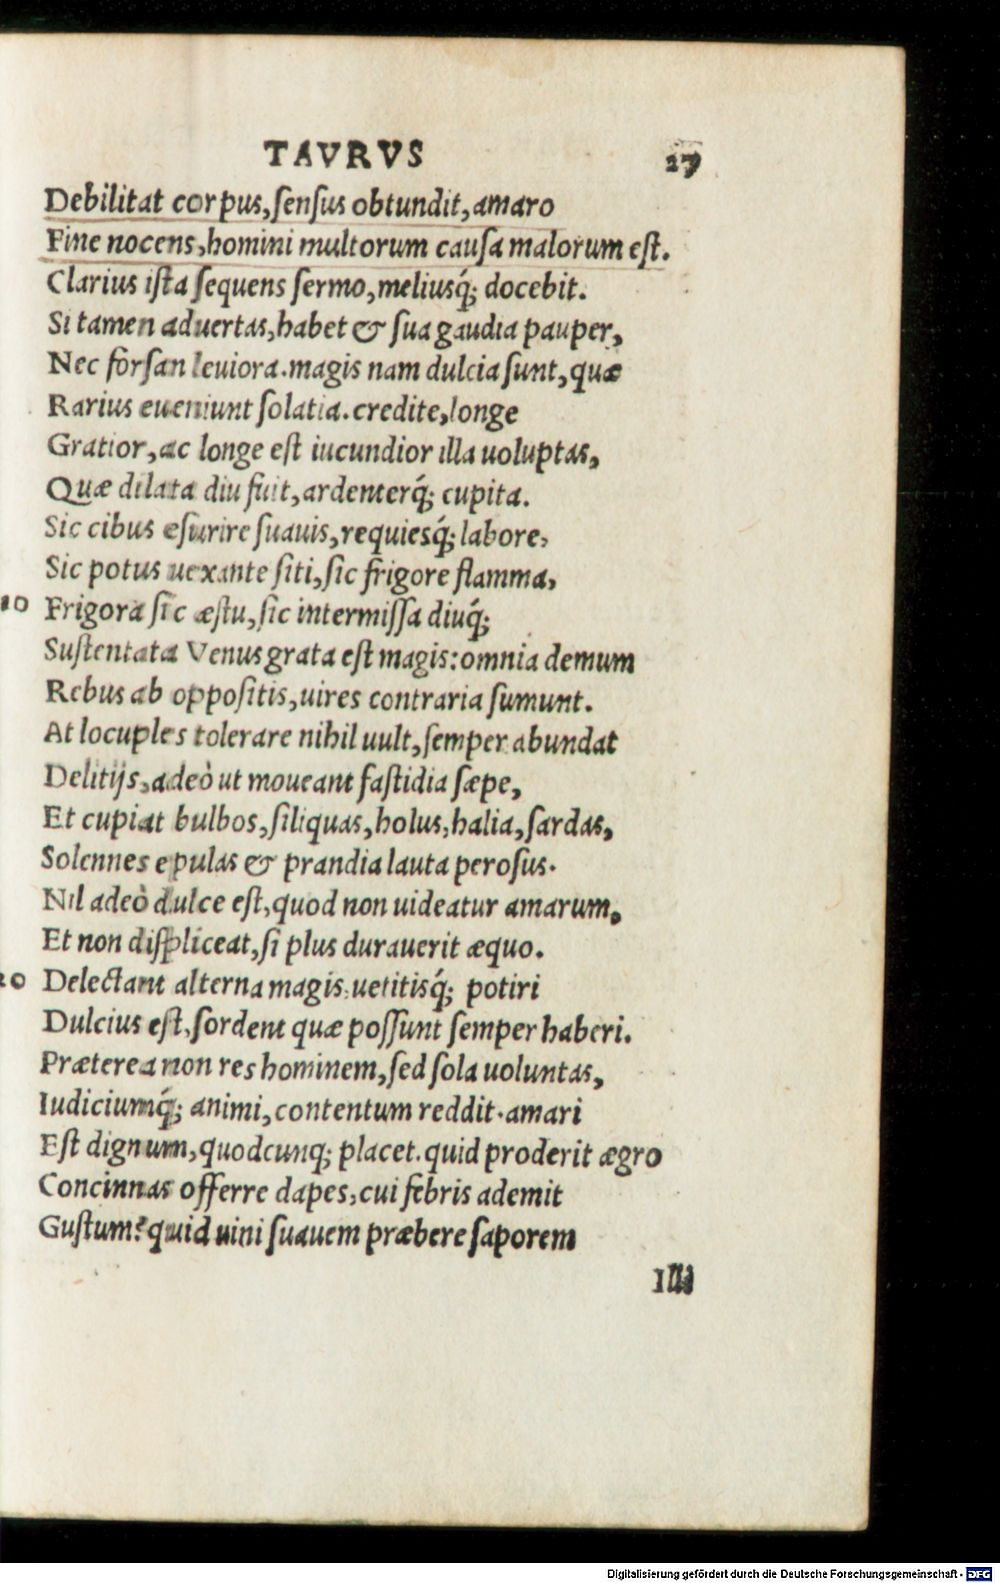 TAVRVS 27
Debilitat corpus, ſenſus obtundit, amaro
Fine nocens, homini multorum cauſa malorum eſt.
Clarius iſta ſequens ſermo, meliusq́; docebit.
Si tamen aduertas, habet & ſua gaudia pauper,
Nec forſan leuiora. magis nam dulcia ſunt, quæ
Rarius eueniunt ſolatia. credite, longe
Gratior, ac longe est iucundior illa uoluptas,
Quæ dilata diu fuit, ardenterq́; cupita.
Sic cibus eſurire ſuauis, requiesq́; labore,
Sic potus uexante ſiti, ſic frigore flamma,
10 Frigora ſic æſtu, ſic intermiſſa diuq́;
Suſtentata Venus grata eſt magis: omnia demum
Rebus ab oppoſitis, uires contraria ſumunt.
At locuples tolerare nihil uult, ſemper abundat
Delitijs, adeò ut moueant faſtidia ſæpe,
Et cupiat bulbos, ſiliquas, holus, halia, ſardas,
Solennes epulas & prandia lauta peroſus.
Nil adeò dulce eſt, quod non uideatur amarum,
Et non diſpliceat, ſi plus durauerit æquo.
20 Delectant alterna magis, uetitisq́; potiri
Dulcius eſt, ſordent quæ poſſunt ſemper haberi.
Præterea non res hominem, ſed ſola uoluntas,
Iudiciumq́; animi, contentum reddit. amari
Eſt dignum, quodcunq; placet. quid proderit ægro
Concinnas offerre dapes, cui febris ademit
Guſtum? quid uini ſuauem præbere ſaporem
IIII
Digitalisierung gefördert durch die Deutsche Forschungsgemeinschaft - DFG